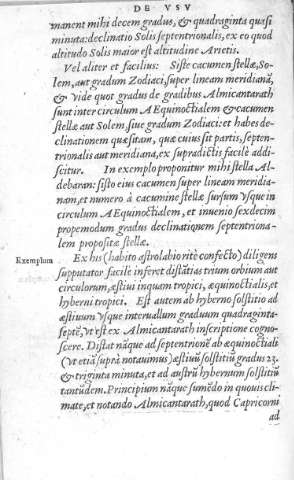 DE VSV
manent mihi decem gradus, & quadraginta quasi
minuta: declinatio Solis septentrionalis, ex eo quod
altitudo Solis maior est altitudine Arietis.
Vel aliter et facilius: Siste cacumen stellæ, So-
lem, aut gradum Zodiaci, super lineam meridianā,
& vide quot gradus de gradibus Almicantarath
sunt inter circulum AEquinoctialem & cacumen
stellæ aut Solem siue gradum Zodiaci: et habes de-
clinationem quæsitam, quæ cuius sit partis, septen-
trionalis aut meridiana, ex supradictis facilè addi-
scitur. In exemplo proponitur mihi stella Al-
debaran: sisto eius cacumen super lineam meridia-
nam, et numero à cacumine stellæ sursum vsque in
circulum AEquinoctialem, et inuenio sexdecim
propemodum gradus declinationem septentriona-
lem propositæ stellæ.
Exemplum Ex his (habito astrolabio ritè confecto) diligens
supputator facilè inferet distātias trium orbium aut
circulorum, æstiui inquam tropici, æquinoctialis, et
hyberni tropici. Est autem ab hyberno solstitio ad
æstiuum vsque interuallum graduum quadraginta-
septē, vt est ex Almicantarath inscriptione cogno-
scere. Distat nāque ad septentrionē ab æquinoctiali
(vt etiā suprà notauimus) æstiuū solstitiū gradus 23.
& triginta minuta, et ad austrū hybernum solstitiū
tantūdem. Principium nāque sumēdo in quouis cli-
mate, et notando Almicantarath, quod Capricorni
ad